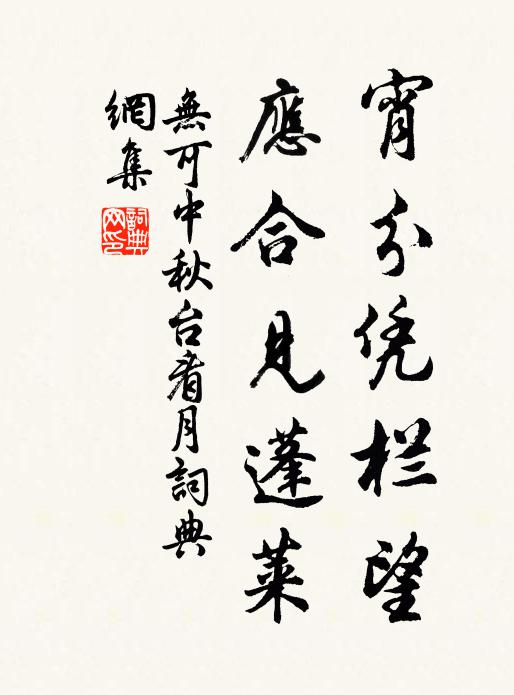 宵分凭栏望
應合見蓬萊
無可中秋台看月詞典
網集
詞典
网印